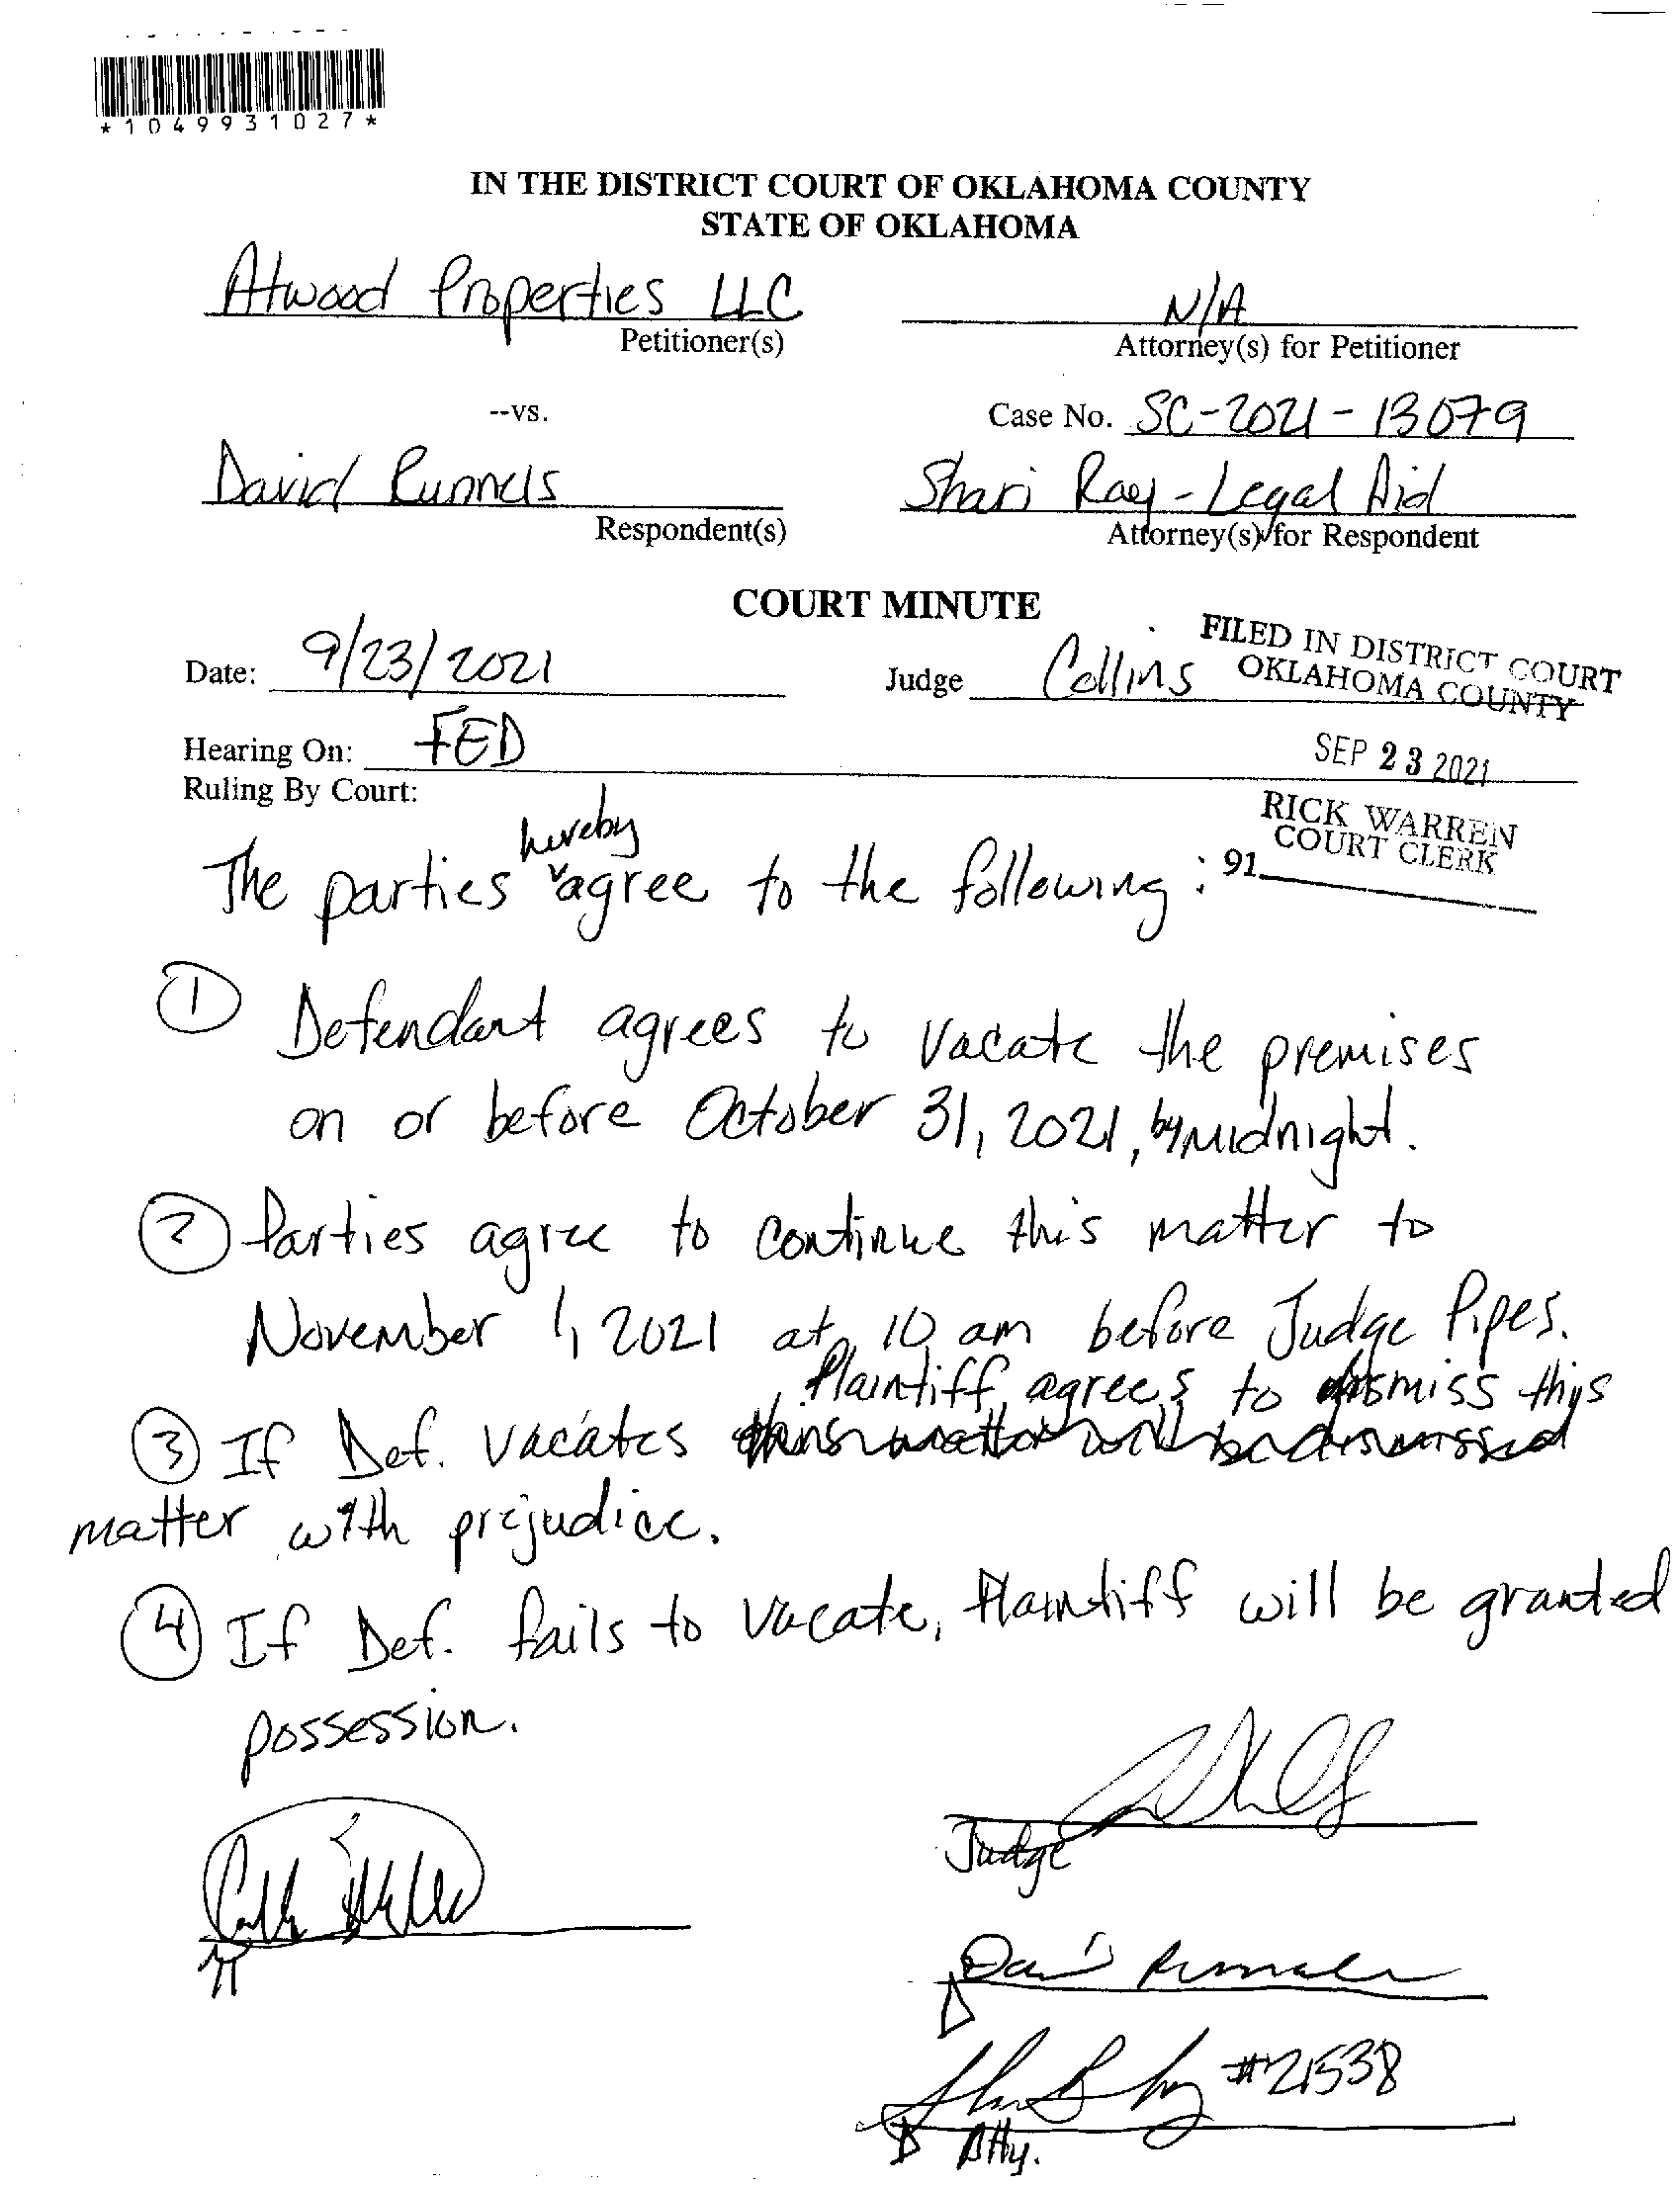 *1049931027*
IN THE DISTRICT COURT OF OKLAHOMA COUNTY
STATE OF OKLAHOMA
Atwood Properties LLC
Petitioner(s)
N/A
Attorney(s) for Petitioner
--vs.
Case No. SC-2021-13079
David Runnels
Respondent(s)
Shari Ray - Legal Aid
Attorney(s) for Respondent
COURT MINUTE
Date: 9/23/2021
Judge Collins
FILED IN DISTRICT COURT
OKLAHOMA COUNTY
SEP 23 2021
RICK WARREN
COURT CLERK
91
Hearing On: FED
Ruling By Court:
The parties hereby agree to the following:
1 Defendant agrees to vacate the premises
on or before October 31, 2021, by midnight.
2 Parties agree to continue this matter to
November 1, 2021 at 10 am before Judge Pipes.
Plaintiff agrees to dismiss this
3 If Def. vacates this matter will be dismissed
matter with prejudice.
4 If Def. fails to vacate, Plaintiff will be granted
possession.
Judge
π
David Runnels
Δ
#21538
Δ Atty.